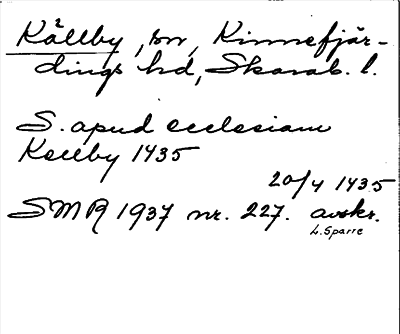 Källby, sn, Kinnefjär-
dings hd, Skarab. l.
S. apud ecclesiam
Kellby 1435
20/4 1435
SMR 1937 nr. 227. avskr.
L. Sparre